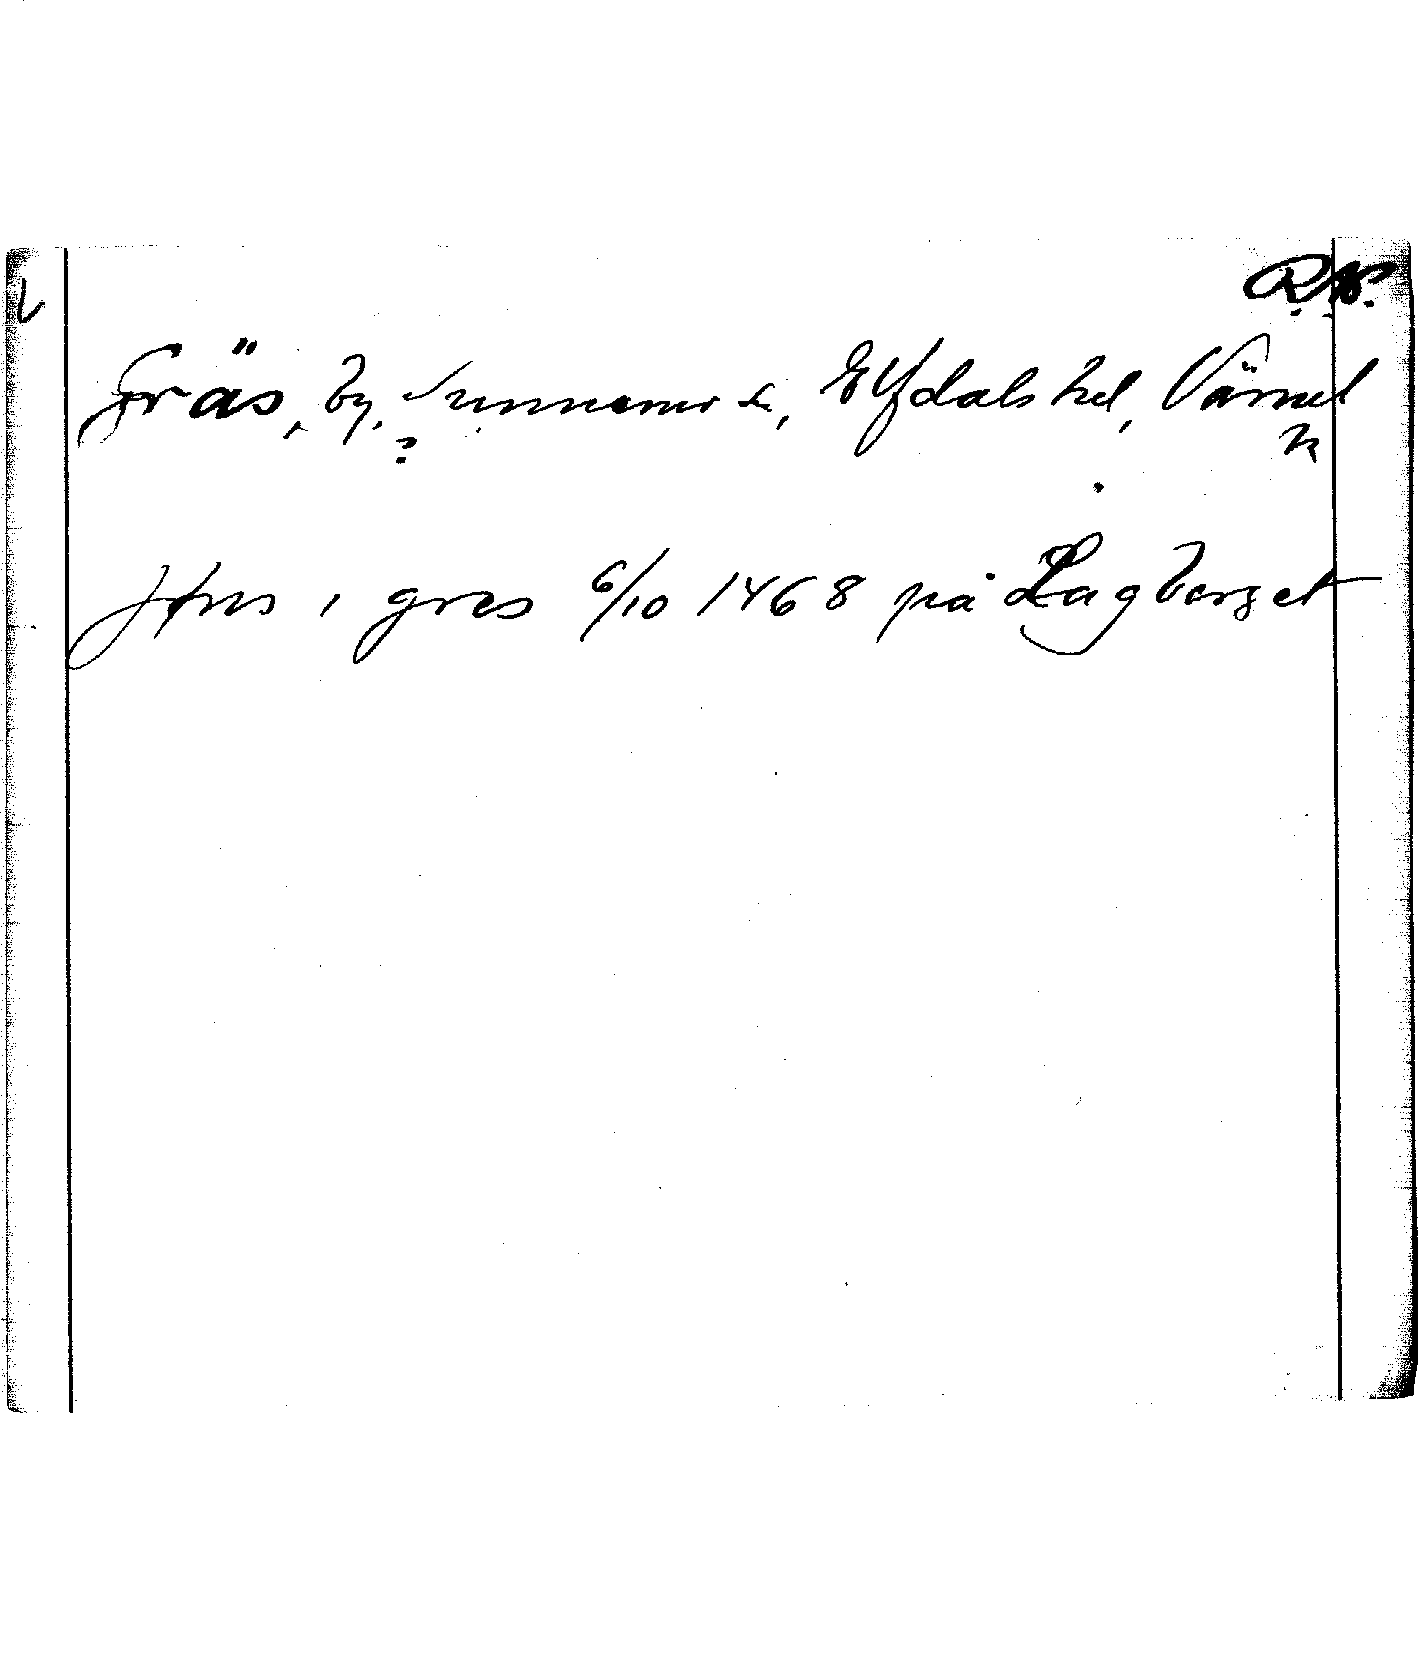 Gräs, by, Sunnemo s., Elfdals hd, Värml
?
Jens i gres 6/10 1468 på Lagberget